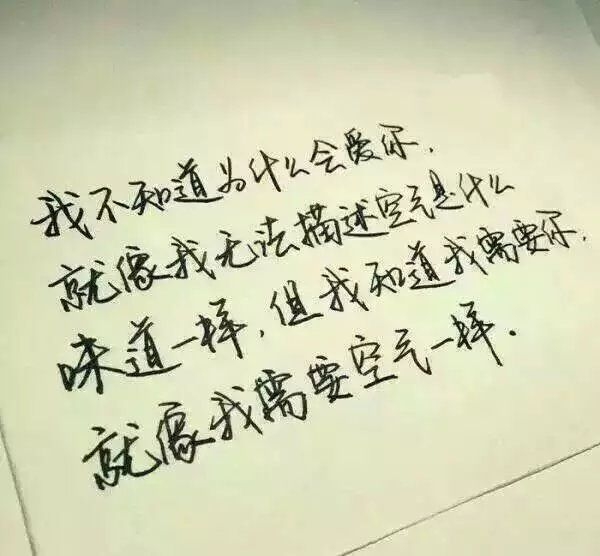 我不知道为什么会爱你.
就像我无法描述空气是什么
味道一样,但我知道我需要你.
就像我需要空气一样.